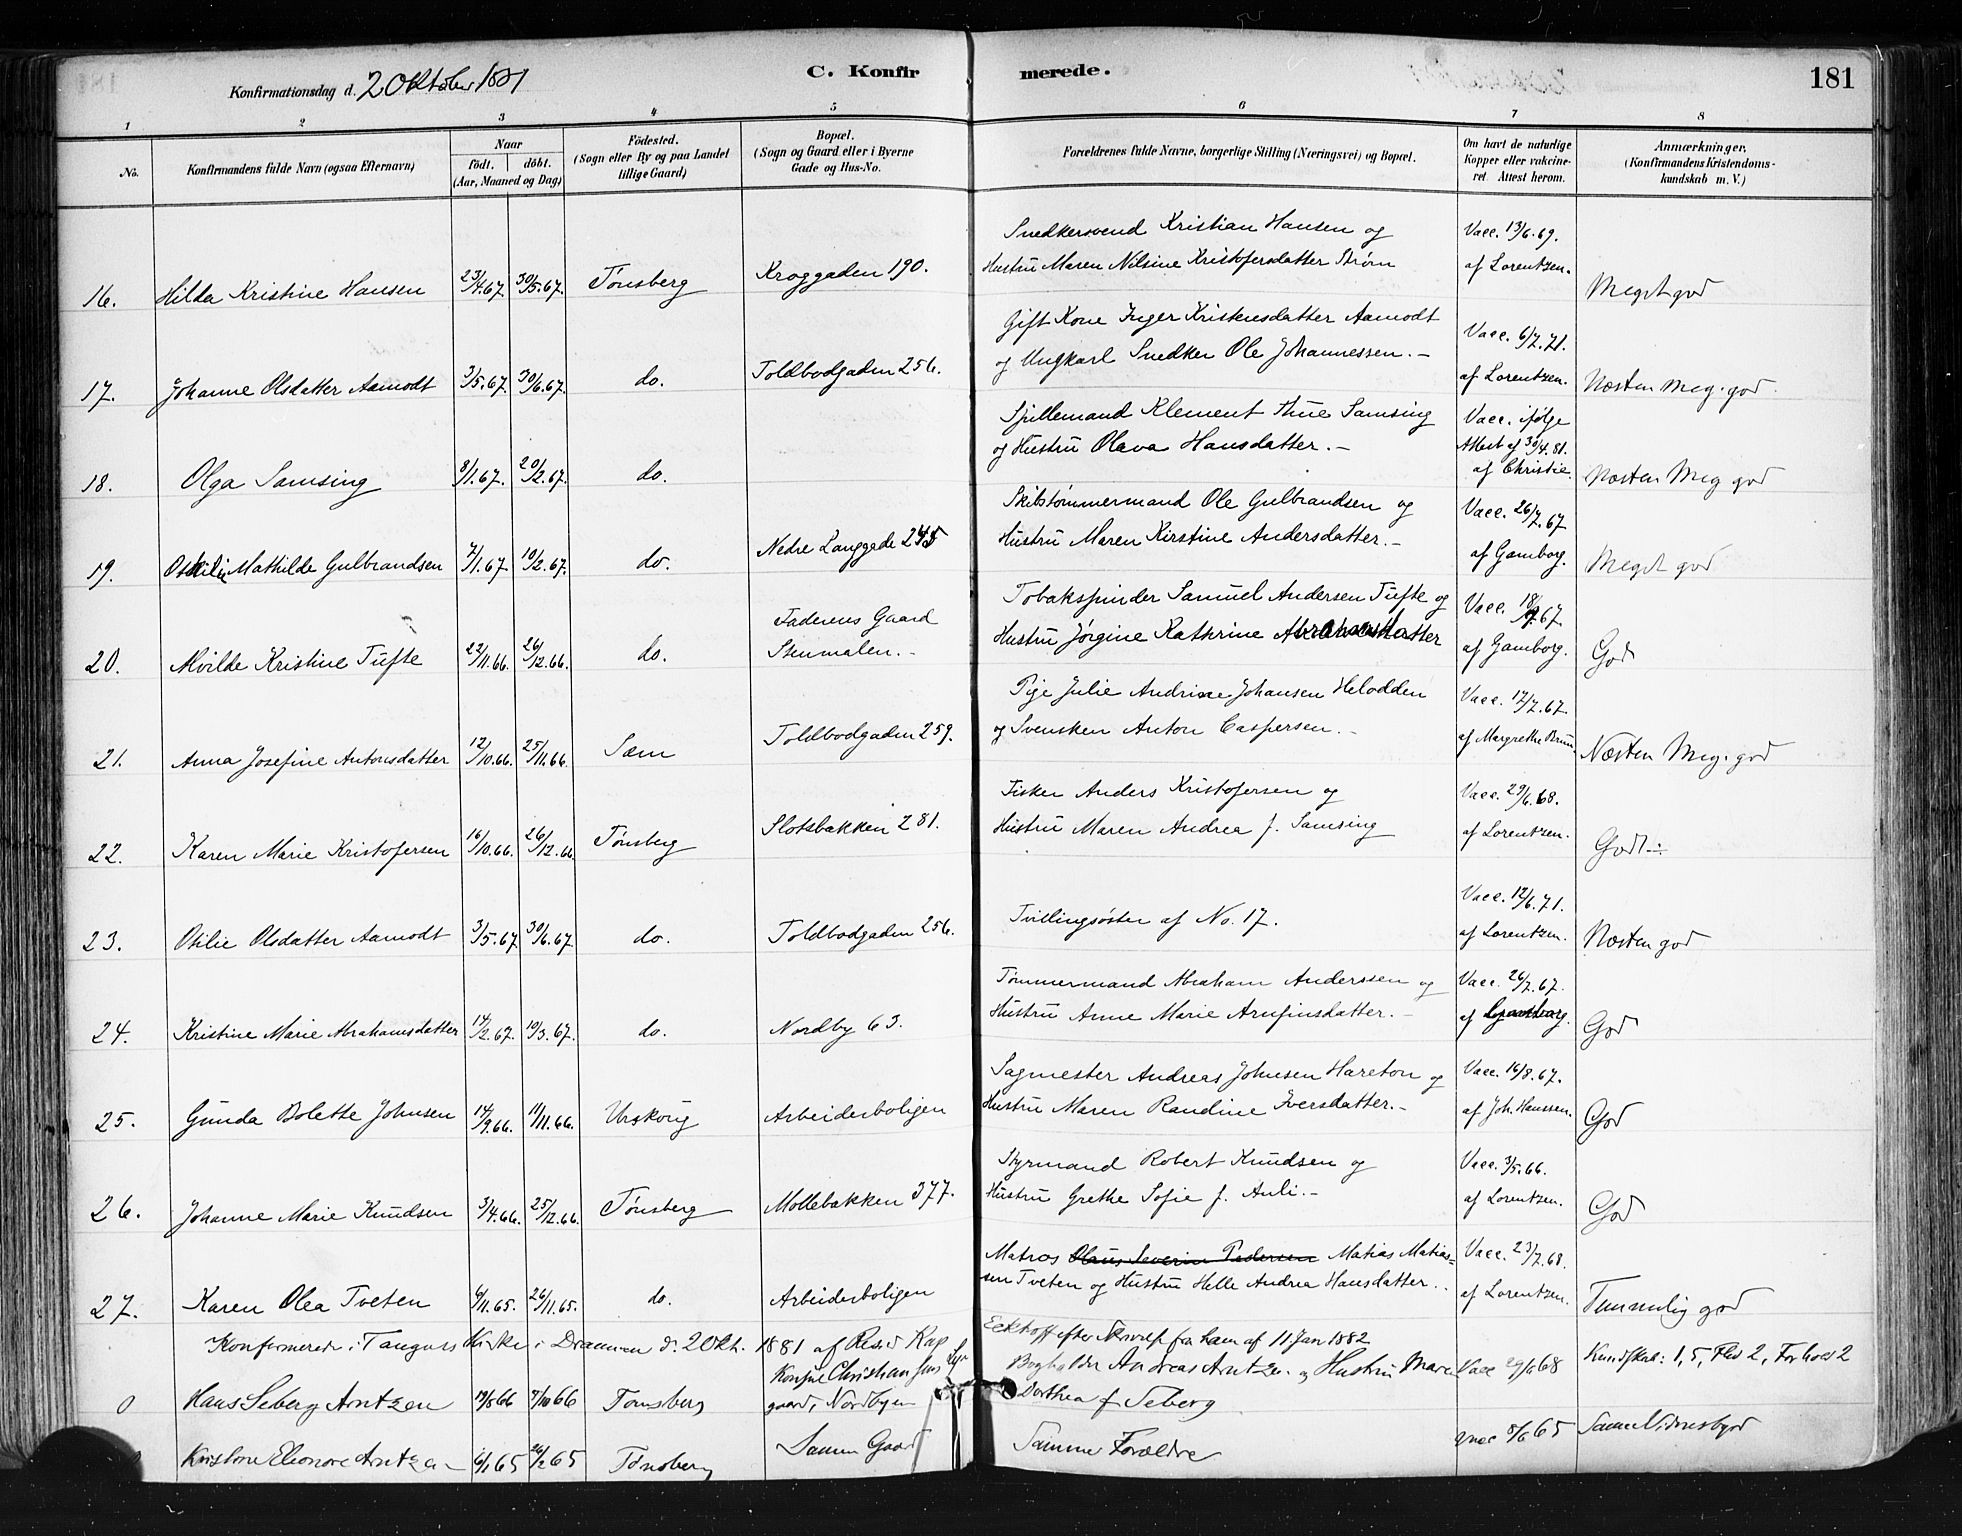 181
Konfirmationsdag d. 2 Oktober 1881
C. Konfirmerede.
1 2 3 4 5 6 7 8
No.
Konfirmandens fulde Navn (ogsaa Efternavn)
Naar
født. døbt.
(Aar, Maaned og Dag)
Fødested.
(Sogn eller By og paa Landet
tillige Gaard)
Bopæl.
(Sogn og Gaard eller i Byerne
Gade og Hus-No.
Forældrenes fulde Navne, borgerlige Stilling (Næringsvei) og Bopæl.
Om havt de naturlige
Kopper eller vakcine-
ret. Attest herom.
Anmærkninger,
(Konfirmandens Kristendoms-
kundskab m. V.)
Snedkersvend Kristian Hansen og Vacc. 13/6.69.
Hustru Maren Nilsine Kristofersdatter Strøm af Lorentzen.
16. Hilda Kristine Hansen 23/4.67. 30/5.67. Tønsberg Kroggaden 190. Meget god
Gift Kone Inger Kristensdatter Aamodt Vacc. 6/7.71.
og Ungkarl Snedker Ole Johannessen.-
17. Johanne Olsdatter Aamodt 3/5.67. 30/6.67. do. Toldbodgaden 256. af Lorentzen. Næsten meg. god
Spillemand Klement Thue Samsing Vacc. ifølge
og Hustru Olava Hansdatter.- Attest af 30/4.81.
18. Olga Samsing 8/1.67. 20/2.67. do. af Christie Næsten Meg god
Skibstømmermand Ole Gulbrandsen og Vacc. 26/7.67
Hustru Maren Kirstine Andersdatter.-
19. Mathilde Gulbrandsen 7/1.67. 10/2.67. do. Nedre Langgade af Gamborg. Meget god
Tobakspinder Samuel Andersen Tufte og Vacc. 67.
Faderens Gaard
Hustru Jørgine Kathrine Abrahamsdatter
20. Mvilde Kristine Tufte 22/11.66. 26/12.66. do. Stenmalen.- af Gamborg. God
Pige Julie Andrine Johansen Helodden Vacc. 17/7.67.
og Svensken Anton Caspersen.-
21. Anna Josefine Antonsdatter 12/10.66. 25/11.66. Sem Toldbodgaden 259. af Margrethe Brun. Næsten Meg. god
Fisker Anders Kristofersen og Vacc. 29/6.68.
Hustru Maren Andrea f. Samsing
22. Karen Marie Kristofersen 16/10.66. 26/12.66. Tønsberg Slotsbakken 281. af Lorentzen. Godt.
Vacc. 12/6.71.
23. Otilie Olsdatter Aamodt 3/5.67 30/6.67. do. Toldbodgaden 256. Tvillingsøster af No. 17. af Lorentzen. Næsten god
Tømmermand Abraham Anderssen og Vacc. 26/7.67.
Hustru Anne Marie Arnfinsdatter.-
24. Kristine Marie Abrahamsdatter 14/2.67. 10/3.67. do. Nordby 63. af Gamborg. God
Sagmester Andreas Johnsen Hareton og Vacc. 16/8.67.
Hustru Maren Randine Iversdatter.-
25. Gunda Bolette Johnsen 14/9.66. 11/11.66. Urskoug Arbeiderboligen af Joh. Hanssen. God
Styrmand Robert Knudsen og Vacc. 3/5.66.
Hustru Grethe Sofie f. Auli.-
26. Johanne Marie Knudsen 3/4.66. 25/12.66. Tønsberg Møllebakken 377. af Lorentzen. God
Matros Olaus Severin Pedersen Matias Matias- Vacc. 23/7.68.
sen Tveten og Hustru Helle Andrea Hansdatter.
27. Karen Olea Tveten 4/11.65. 26/11.65. do. Arbeiderboligen af Lorentzen. Temmelig god
Konfirmerede i Tangens Kirke i Drammen d. 2 Okt. 1881 af Resid Kap Eckhoff efter Skrivelse fra ham af 11 Jan 1882
Hans Seberg Arntzen 66 7/10 66 Tønsberg Konsul Christian gaard, Nordbyen Bogholder Andreas Arntzen og Hustru Maren Dorthea f. Seberg Vacc 68 Kundskab: 1,5, Flid 2, Forhold 2
Kristine Eleonore Arntzen 6/1 65 26/2 65 Tønsberg Samme Gaard Samme Forældre Vacc 8/6 65 Samme Vidnesbyrd